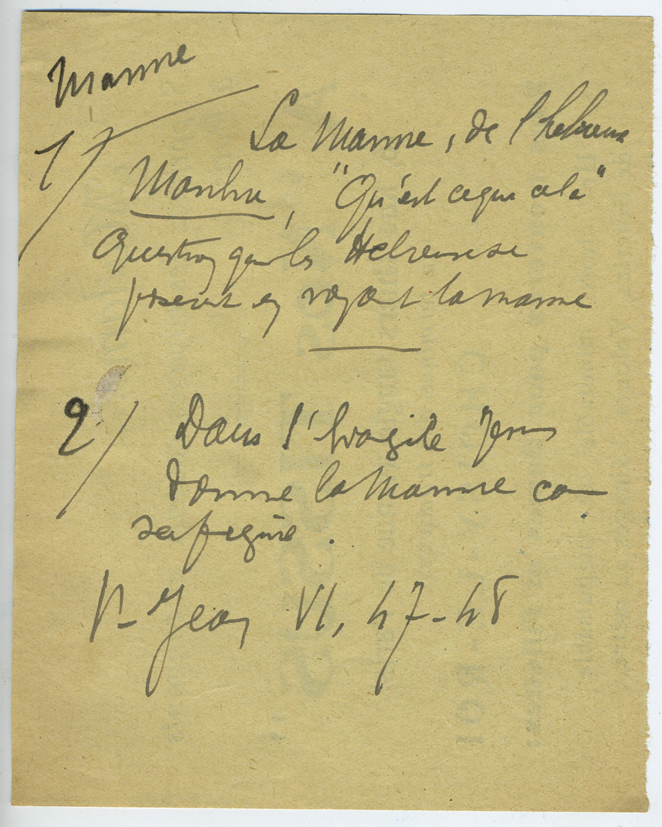 Manne
1/ La Manne, de l'hebreu
Manhu, "Qu'est ce que cela"
Question que les Hebreux se
posent en voyant la manne
2/ Dans l'Evangile Jesus
donne la Manne co
sa figure.
St Jean VI, 47-48